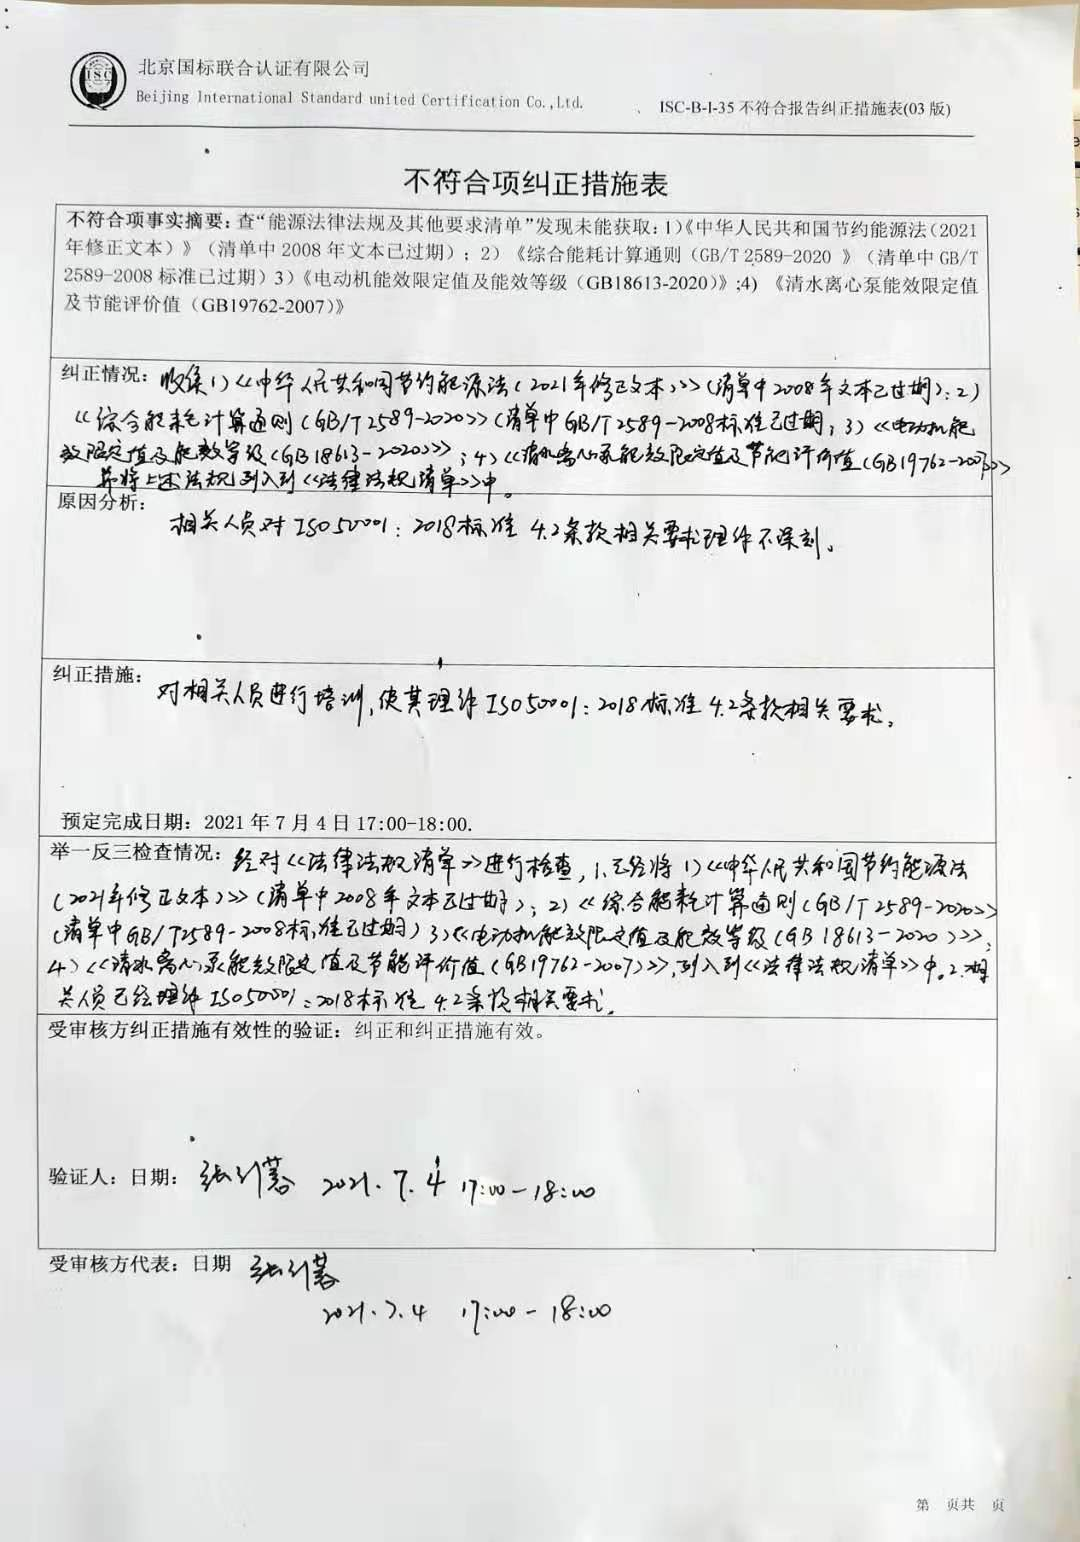 ISC
北京国标联合认证有限公司
Beijing International Standard united Certification Co.,Ltd.
ISC-B-I-35 不符合报告纠正措施表(03 版)
不符合项纠正措施表
不符合项事实摘要：查“能源法律法规及其他要求清单”发现未能获取：1)《中华人民共和国节约能源法（2021
年修正文本）》（清单中 2008 年文本已过期）；2）《综合能耗计算通则（GB/T 2589-2020 》（清单中 GB/T
2589-2008 标准已过期）3）《电动机能效限定值及能效等级（GB18613-2020）》;4) 《清水离心泵能效限定值
及节能评价值（GB19762-2007）》
纠正情况：收集1)《中华人民共和国节约能源法（2021年修正文本）》（清单中2008年文本已过期）；2）
《综合能耗计算通则（GB/T 2589-2020》（清单中GB/T2589-2008标准已过期；3）《电动机能
效限定值及能效等级（GB 18613-2020》；4）《清水离心泵能效限定值及节能评价值（GB19762-2007）》
并将上述法规列入到《法律法规清单》中。
原因分析：
相关人员对ISO50001：2018标准 4.2条款相关要求理解不深刻。
纠正措施：
对相关人员进行培训，使其理解ISO50001：2018标准 4.2条款相关要求。
预定完成日期：2021 年 7 月 4 日 17:00-18:00.
举一反三检查情况：经对《法律法规清单》进行检查，1.已经将 1）《中华人民共和国节约能源法
（2021年修正文本）》（清单中2008年文本已过期）；2）《综合能耗计算通则（GB/T 2589-2020》
（清单中GB/T2589-2008标准已过期）3）《电动机能效限定值及能效等级（GB 18613-2020）》；
4）《清水离心泵能效限定值及节能评价值（GB19762-2007）》，列入到《法律法规清单》中。2.相
关人员已经理解ISO50001：2018标准 4.2条款相关要求。
受审核方纠正措施有效性的验证：纠正和纠正措施有效。
验证人：日期： 2021.7.4 17:00-18:00
受审核方代表：日期
2021.7.4 17:00-18:00
第 页共 页